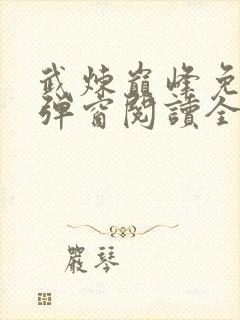 武煉巔峰免
彈窗閱讀全
嚴琴